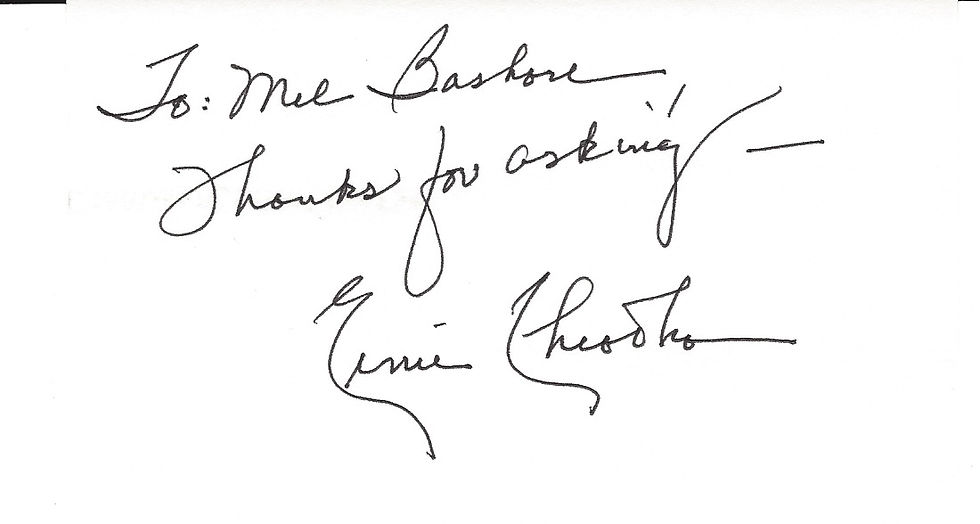 To: Mel Bashore
Thanks for asking! —
Ernie